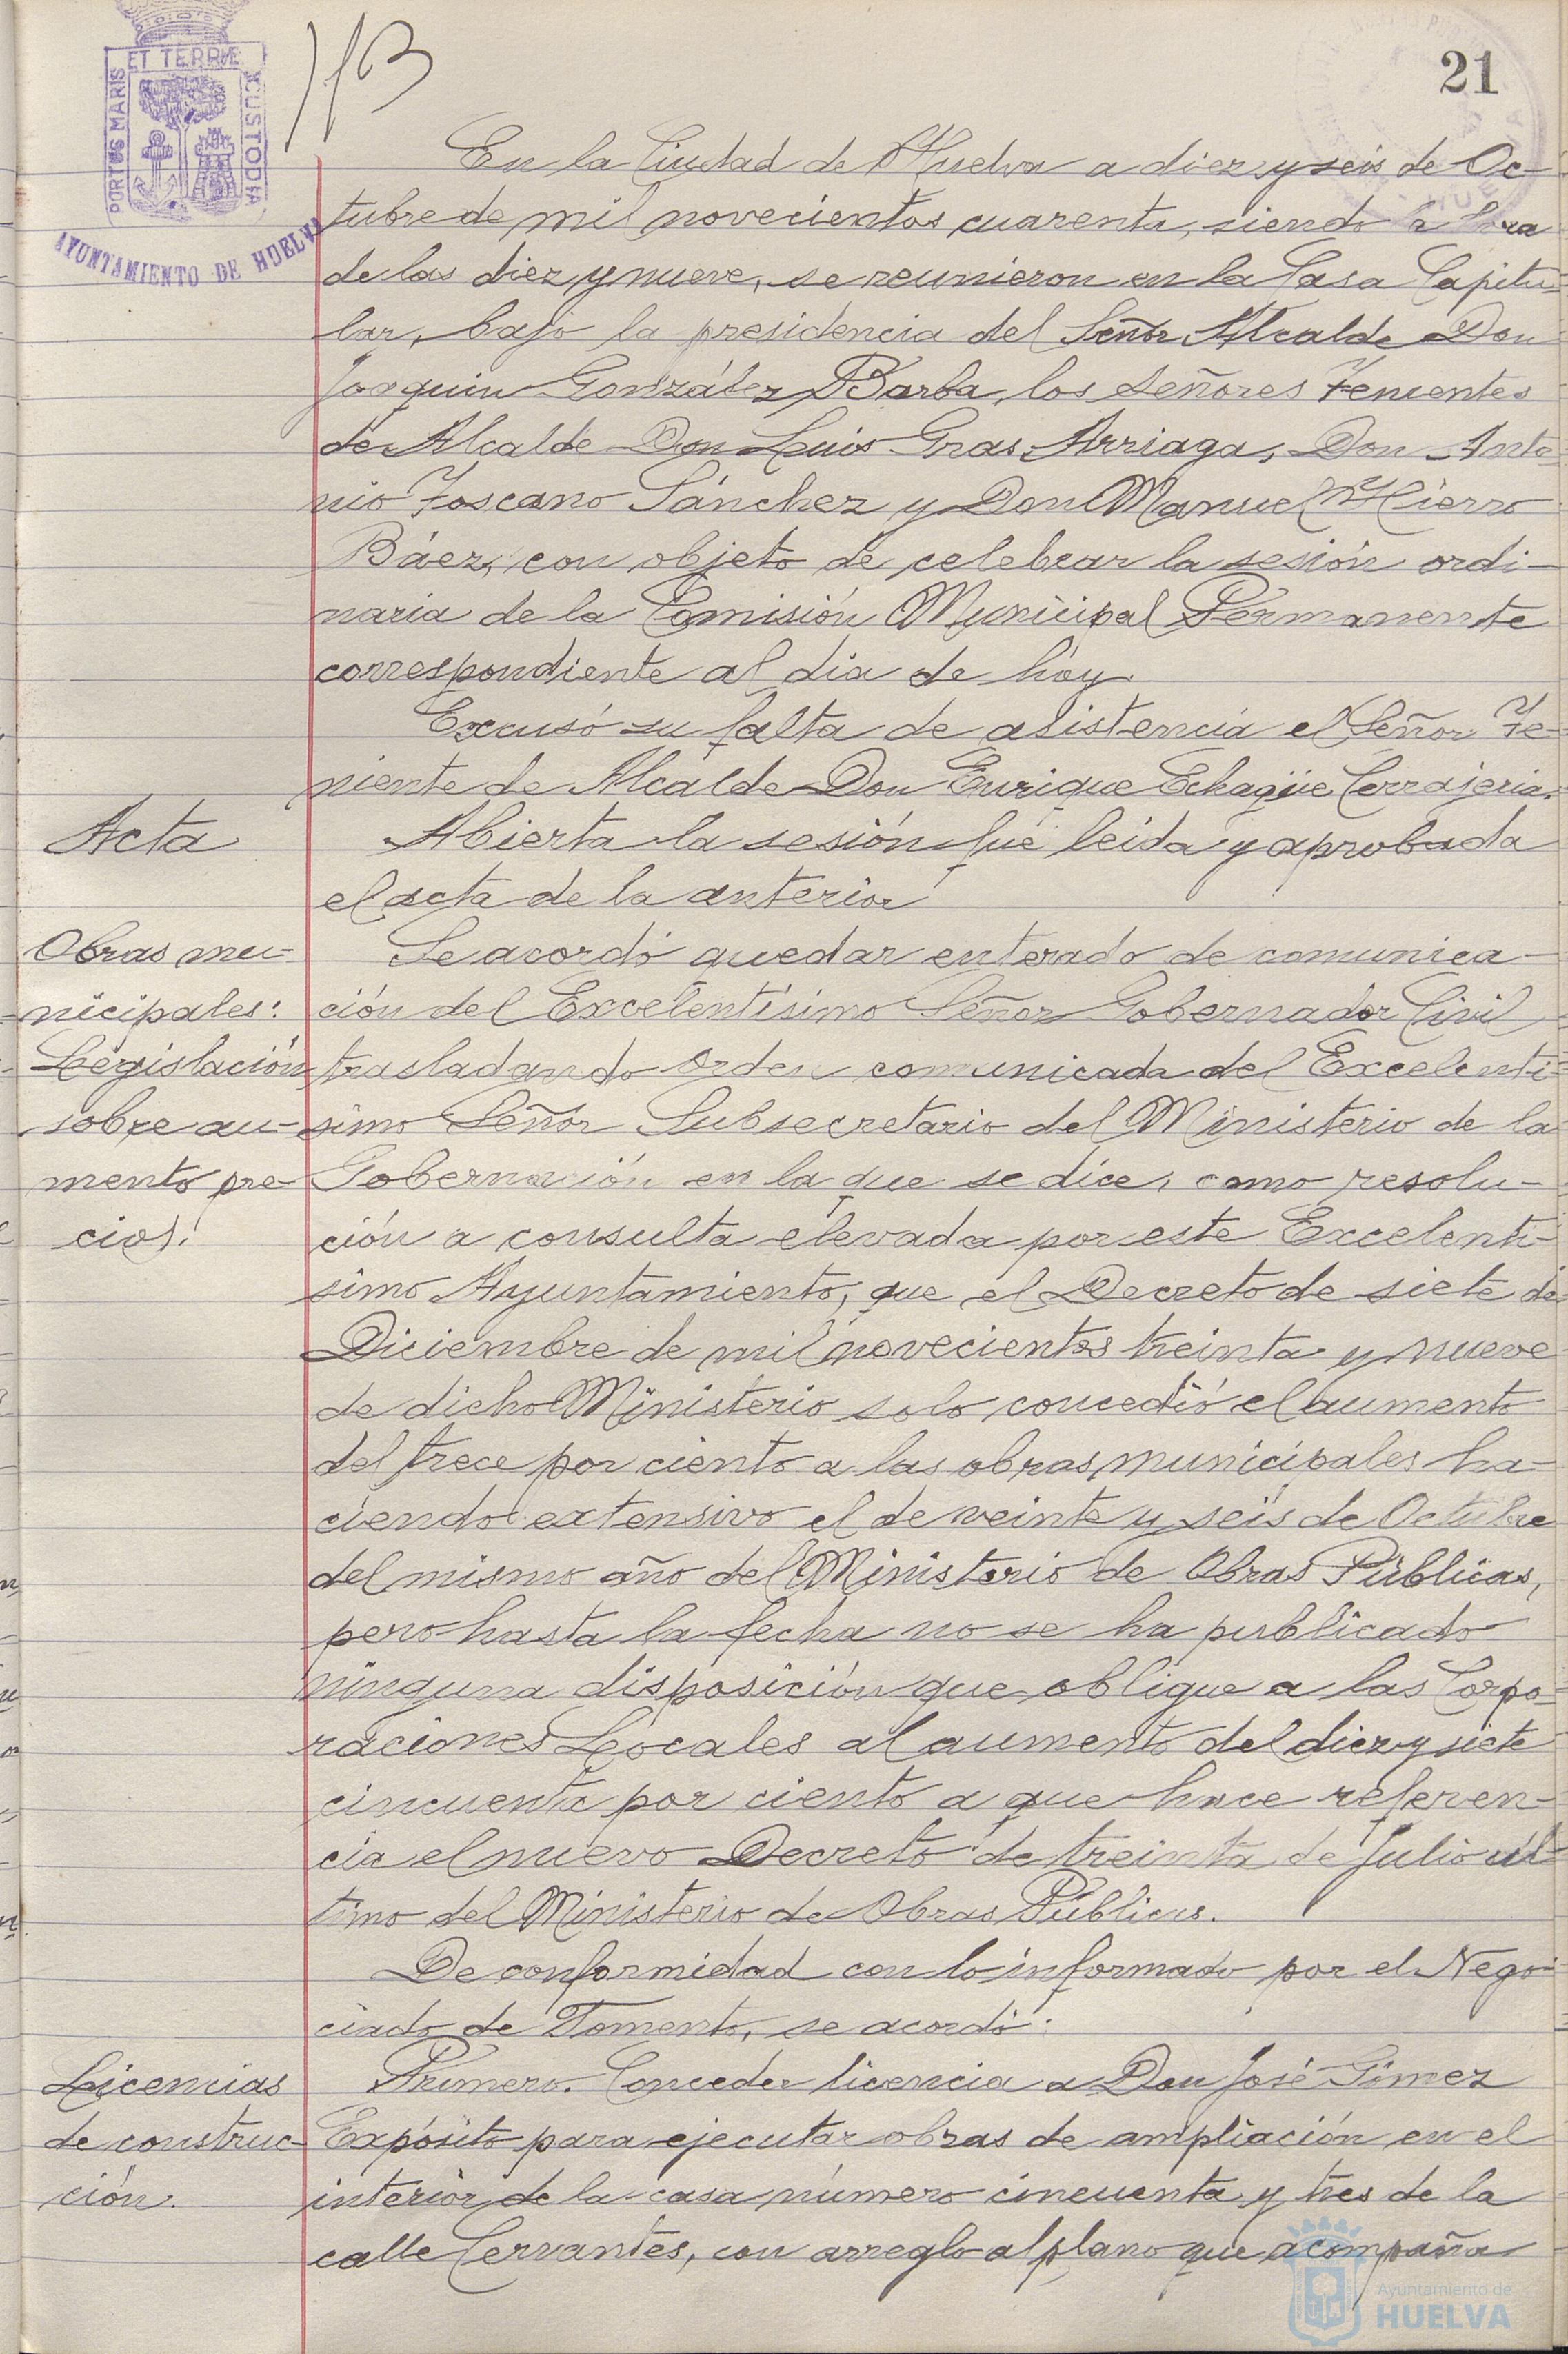 21
PORTUS MARIS ET TERRÆ CUSTODIA
AYUNTAMIENTO DE HUELVA
En la Ciudad de Huelva a diez y seis de Oc-
tubre de mil novecientos cuarenta, siendo la hora
de las diez y nueve, se reunieron en la Casa Capitu-
lar, bajo la presidencia del Señor Alcalde Don
Joaquin González Barba, los Señores Tenientes
de Alcalde Don Luis Gras Arriaga, Don Anto-
nio Toscano Sánchez y Don Manuel Hierro
Báez, con objeto de celebrar la sesión ordi-
naria de la Comisión Municipal Permanente
correspondiente al dia de hoy.
Excusó su falta de asistencia el Señor Te-
niente de Alcalde Don Enrique Echagüe Cerrajeria.
Acta
Abierta la sesión fué leida y aprobada
el acta de la anterior
Obras mu-
nicipales:
Legislación
sobre au-
mento pre-
cios.
Se acordó quedar enterado de comunica-
ción del Excelentísimo Señor Gobernador Civil
trasladando orden comunicada del Excelenti-
simo Señor Subsecretario del Ministerio de la
Gobernación en la que se dice, como resolu-
ción a consulta elevada por este Excelenti-
simo Ayuntamiento, que el Decreto de siete de
Diciembre de mil novecientos treinta y nueve
de dicho Ministerio solo concedió el aumento
del trece por ciento a las obras municipales ha-
ciendo extensivo el de veinte y seis de Octubre
del mismo año del Ministerio de Obras Públicas,
pero hasta la fecha no se ha publicado
ninguna disposición que obligue a las Corpo-
raciones Locales al aumento del diez y siete
cincuenta por ciento a que hace referen-
cia el nuevo Decreto de treinta de Julio úl-
timo del Ministerio de Obras Públicas.
De conformidad con lo informado por el Nego-
ciado de Fomento, se acordó:
Licencias
de construc-
ción.
Primero. Conceder licencia a Don José Gómez
Expósito para ejecutar obras de ampliación en el
interior de la casa número cincuenta y tres de la
calle Cervantes, con arreglo al plano que acompaña
Ayuntamiento de
HUELVA